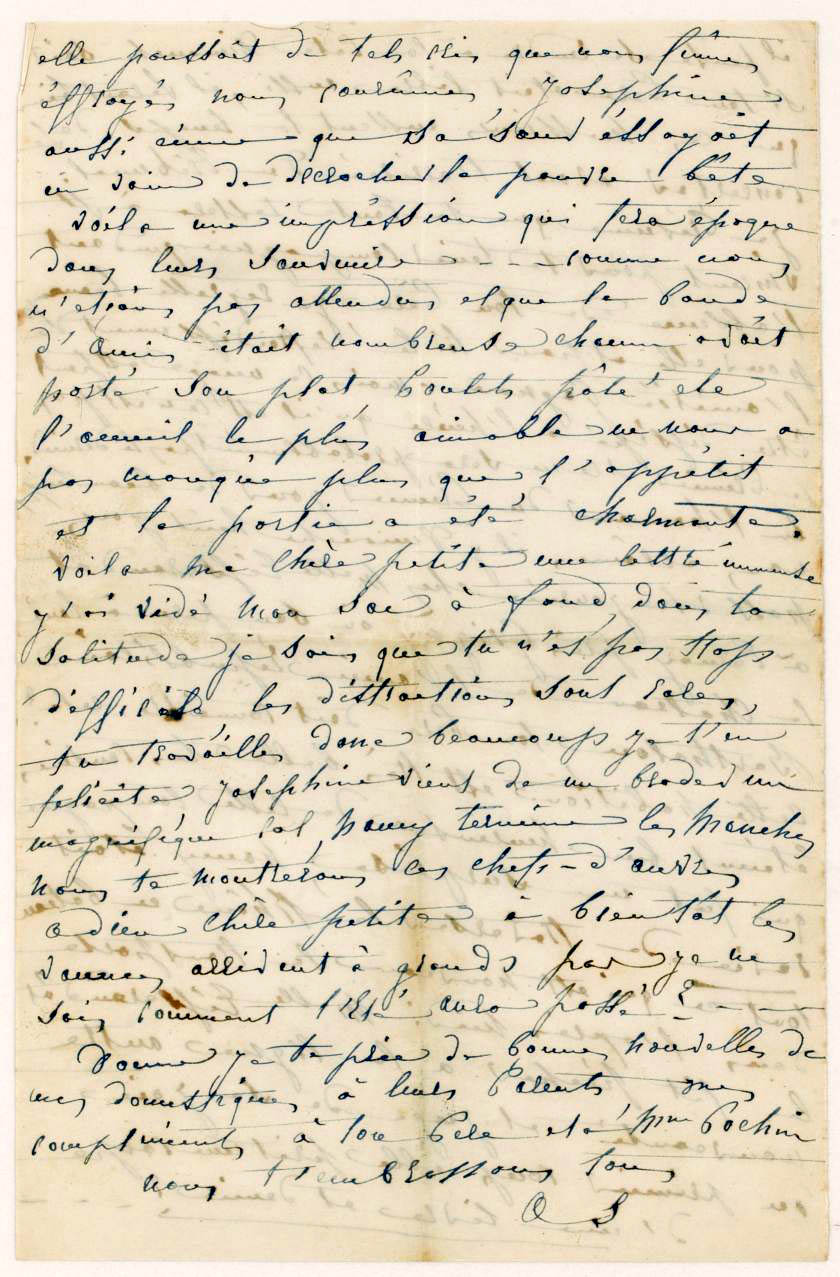 elle poussoit de tels cris que nous fûmes
éffrayés nous courûmes Josephine
aussi émue que sa soeur éssayoit
en vain de decrocher la pauvre bête
voila une impréssion qui fera époque
dans leurs souvenirs - - - comme nous
n'etions pas attendus et que la bande
d'Amis était nombreuse chacun avoit
porté son plat, poulets pâté etc
l'acceuil le plus aimable ne nous a
pas manquée plus que l'appétit
et la partie a été charmante.
voila ma chère petite une lettre immense
j'ai vidé mon sac à fond, dans ta
solitude je sais que tu n'es pas trop
difficile les distractions sont rares,
tu travailles donc beaucoup je t'en
félicite Josephine vient de me broder un
magnifique col, Nancy termine les manches
nous te montrerons ces chefs-d'oeuvres
adieu chère petite à bientôt les
vacances arrivent à grands pas je ne
sais comment l'Eté aura passé ? - - - -
Donne je te prie de bonnes nouvelles de
mes domestiques à leurs Parents mes
compliments à ton Pere et à Mme Pochin
nous t'embrassons tous
O S